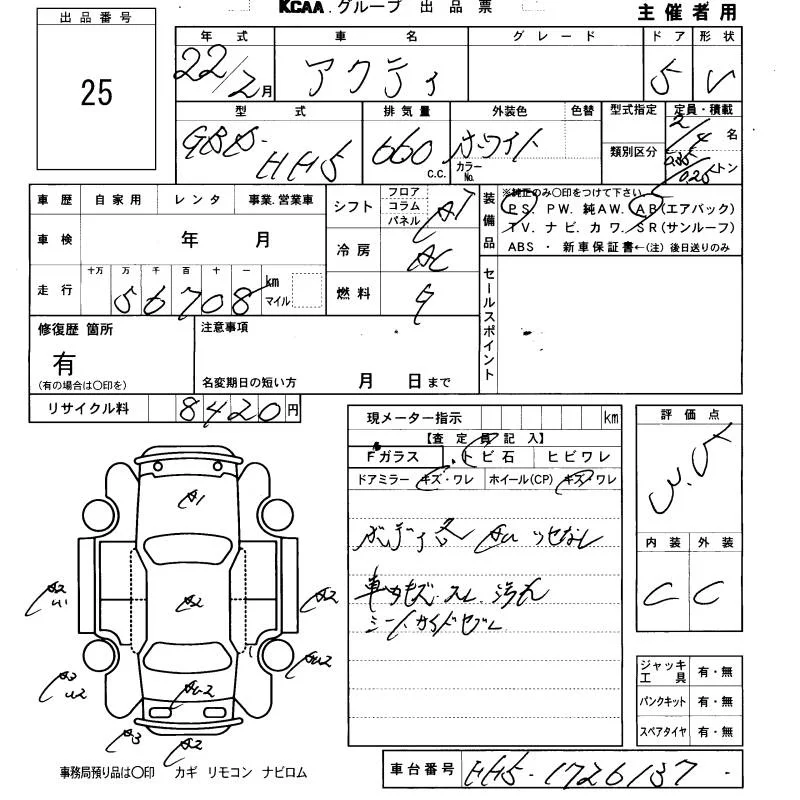 出品番号
25
KCAA.グループ 出品票
主催者用
年式 車名 グレード ドア 形状
22/2月 アクティ 5 V
型式 排気量 外装色 色替 型式指定 定員・積載
GBD-HH5 660c.c. ホワイト 2/4名
カラーNo. 類別区分 0.35/0.25トン
車歴 自家用 レンタ 事業.営業車
車検 年 月
走行 十万 万 千 百 十 一
56708 km マイル
シフト フロア コラム パネル AT
冷房 AC
燃料
装備品
※純正のみ○印をつけて下さい
PS. PW. 純AW. AB(エアバック)
TV. ナビ. カワ. SR(サンルーフ)
ABS・新車保証書←(注)後日送りのみ
セールスポイント
修復歴 箇所
有
(有の場合は○印を)
注意事項
名変期日の短い方 月 日まで
リサイクル料 8420円
現メーター指示 km
【査定員記入】
Fガラス トビ石 ヒビワレ
ドアミラー キズ・ワレ ホイール(CP) キズ・ワレ
車内キズ.スレ.汚れ
評価点
内装 外装
C C
A1
A2
A2
U1
A2
A3
U2
AU2
A3
A2
ジャッキ工具 有・無
パンクキット 有・無
スペアタイヤ 有・無
事務局預り品は○印 カギ リモコン ナビロム
車台番号 HH5-1726137